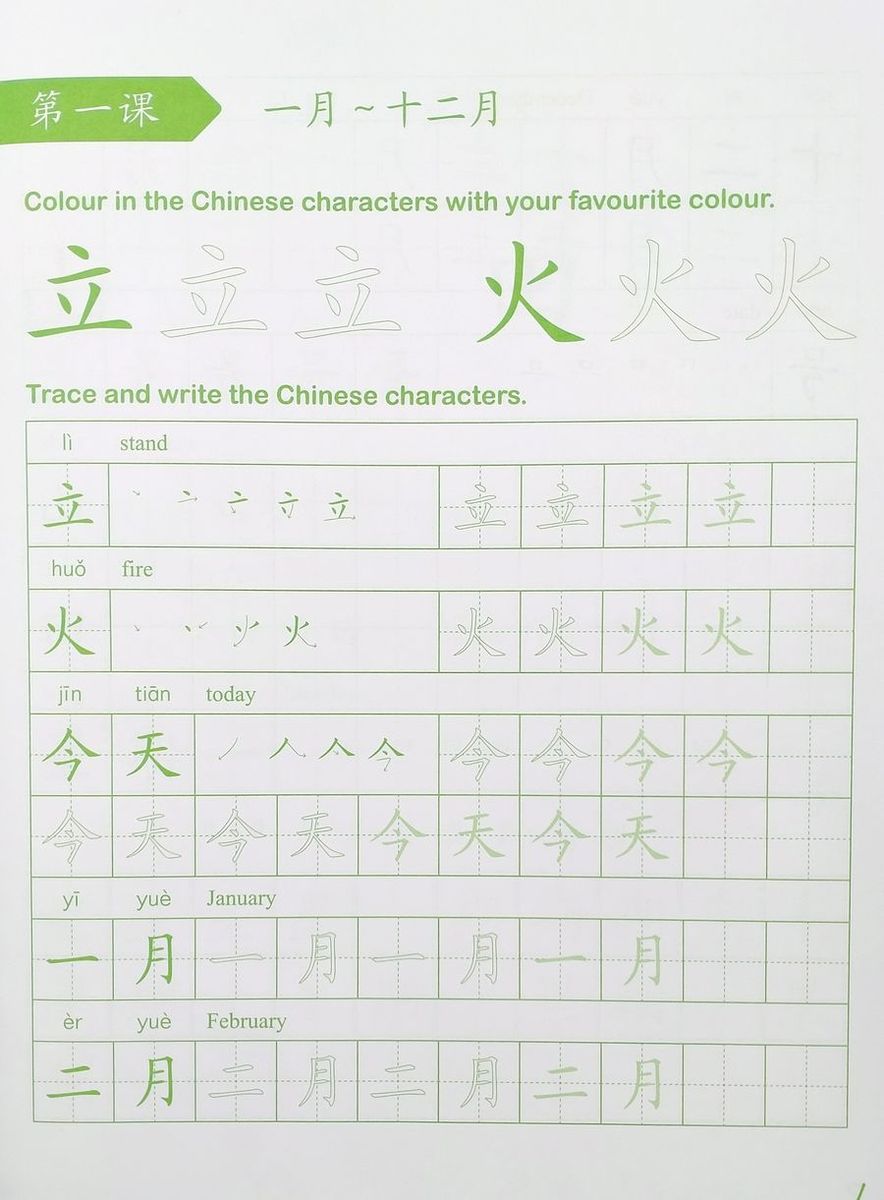 第一课 一月~十二月
Colour in the Chinese characters with your favourite colour.
立 立 立 火 火 火
Trace and write the Chinese characters.
lì stand
立 立 立 立 立 立
huǒ fire
火 火 火 火 火 火
jīn tiān today
今 天 今 今 今 今 今
今 天 今 天 今 天 今 天
yī yuè January
一 月 一 月 一 月 一 月
èr yuè February
二 月 二 月 二 月 二 月